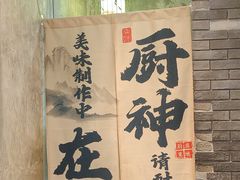 厨神
在
美味制作中
请